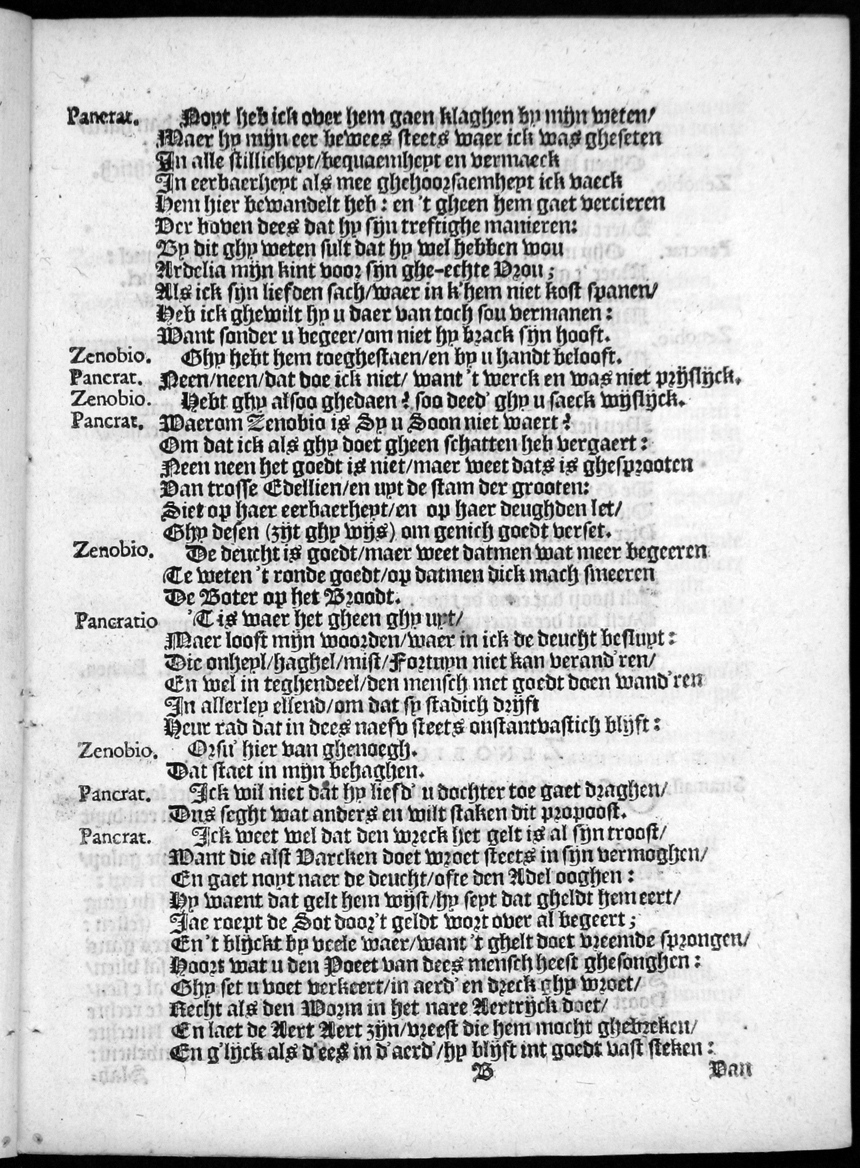 Pancrat. Noyt heb ick over hem gaen klaghen by mijn weten/
Maer hy mijn eer bewees steets waer ick was gheseten
In alle stillicheyt/bequaemheyt en vermaeck
In eerbaerheyt als mee ghehoorsaemheyt ick vaeck
Hem hier bewandelt heb: en 't gheen hem gaet vercieren
Ver boven dees dat hy sijn treftighe manieren:
By dit ghy weten sult dat hy wel hebben wou
Ardelia mijn kint voor sijn ghe-echte Vrou;
Als ick sijn liefden sach/waer in k'hem niet kost spanen/
Heb ick ghewilt hy u daer van toch sou vermanen:
Want sonder u begeer/om niet hy brack sijn hooft.
Zenobio. Ghy hebt hem toeghestaen/en by u handt belooft.
Pancrat. Neen/neen/dat doe ick niet/ want 't werck en was niet prijslijck.
Zenobio. Hebt ghy alsoo ghedaen? soo deed' ghy u saeck wijslijck.
Pancrat. Waerom Zenobio is Sy u Soon niet waert?
Om dat ick als ghy doet gheen schatten heb vergaert:
Neen neen het goedt is niet/maer weet dats is ghesprooten
Van trosse Edellien/en uyt de stam der grooten:
Siet op haer eerbaerheyt/en op haer deughden let/
Ghy desen (zijt ghy wijs) om genich goedt verset.
Zenobio. De deucht is goedt/maer weet datmen wat meer begeeren
Te weten 't ronde goedt/op datmen dick mach smeeren
De Boter op het Broodt.
Pancratio 'T is waer het gheen ghy uyt/
Maer looft mijn woorden/waer in ick de deucht besluyt:
Die onheyl/haghel/mist/Fortuyn niet kan verand'ren/
En wel in teghendeel/den mensch met goedt doen wand'ren
In allerley ellend/om dat sy stadich drijft
Heur rad dat in dees naefv steets onstantvastich blijft:
Zenobio. Orsu' hier van ghenoegh.
Dat staet in mijn behaghen.
Pancrat. Ick wil niet dat hy liefd' u dochter toe gaet draghen/
Dus seght wat anders en wilt staken dit propoost.
Pancrat. Ick weet wel dat den wreck het gelt is al sijn troost/
Want die alst Varcken doet wroet steets in sijn vermoghen/
En gaet noyt naer de deucht/ofte den Adel ooghen:
Hy waent dat gelt hem wijst/hy seyt dat gheldt hem eert/
Jae roept de Sot door't geldt wort over al begeert;
En 't blijckt by veele waer/want 't ghelt doet vreemde sprongen/
Hoort wat u den Poeet van dees mensch heest ghesonghen:
Ghy set u voet verkeert/in aerd' en dreck ghy wroet/
Recht als den Worm in het nare Aertrijck doet/
En laet de Aert Aert zijn/vreest die hem mocht ghebreken/
En g'lijck als d'ees in d'aerd'/hy blijft int goedt vast steken:
B Van